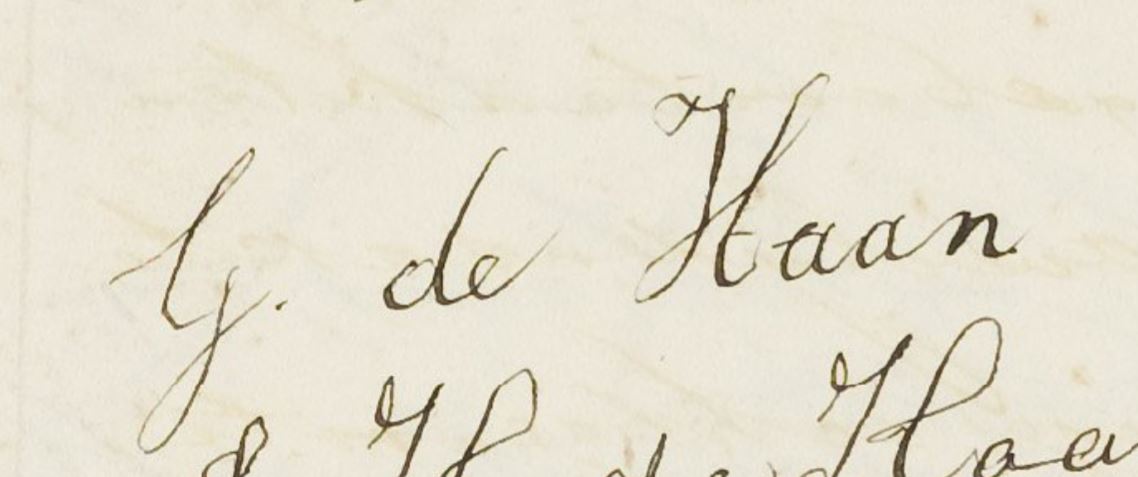 G. de Haan
H de Haa